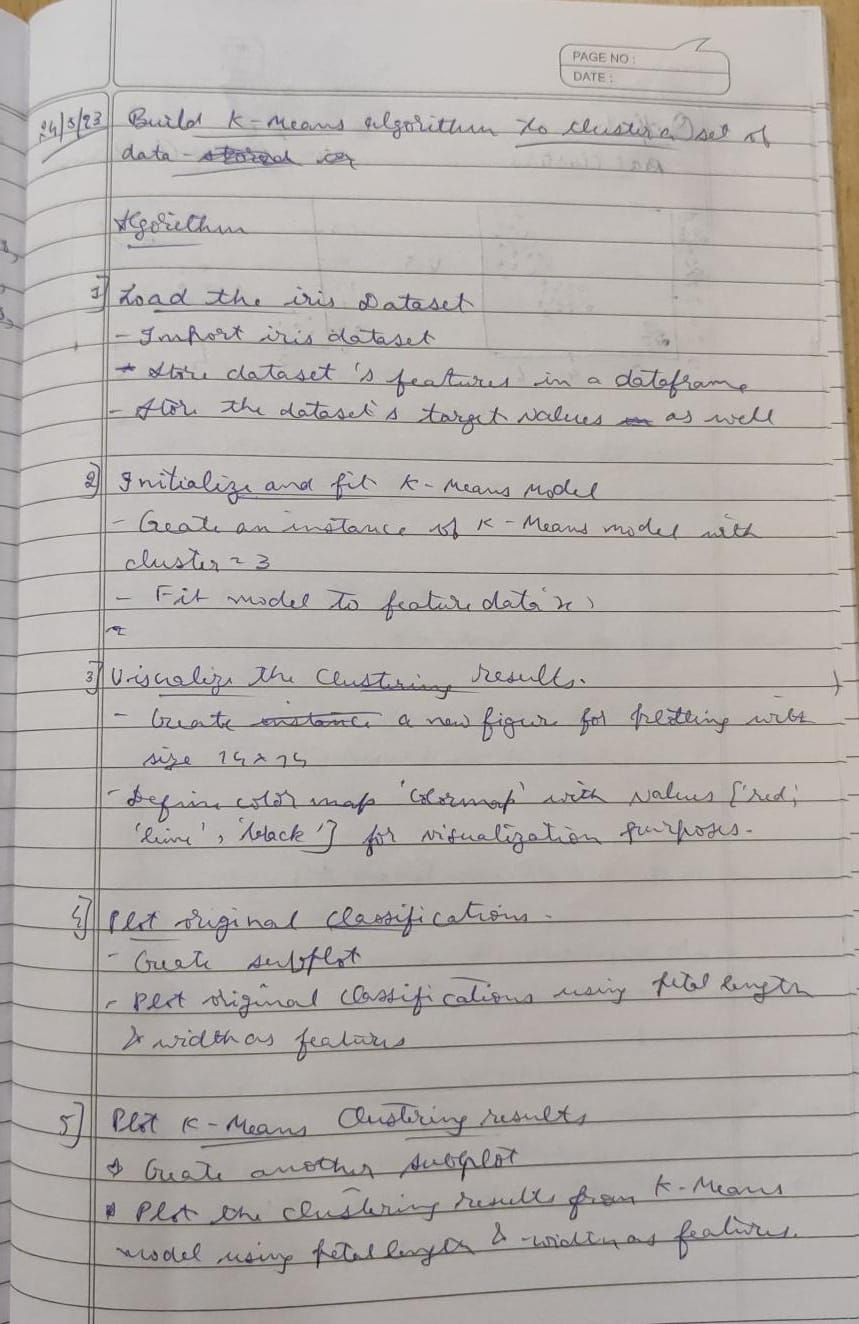 PAGE NO :
DATE :
24/5/23 Build K-Means algorithm to cluster a set of
data - stored in
Algorithm
1] Load the iris Dataset
- Import iris dataset
- Store dataset's features in a dataframe
- Store the dataset's target values as well
2] Initialize and fit K-Means Model
- Create an instance of K-Means model with
cluster = 3
- Fit model to feature data 'x'
3] Visualize the Clustering results.
- Create instance a new figure for plotting with
size 14 x 14
- Define color map 'Colormap' with values ['red',
'lime', 'black'] for visualization purposes.
4] Plot original classifications.
- Create subplot
- Plot original classifications using petal length
& width as features
5] Plot K-Means Clustering results
Create another subplot
Plot the clustering results from K-Means
model using petal length & width as features.